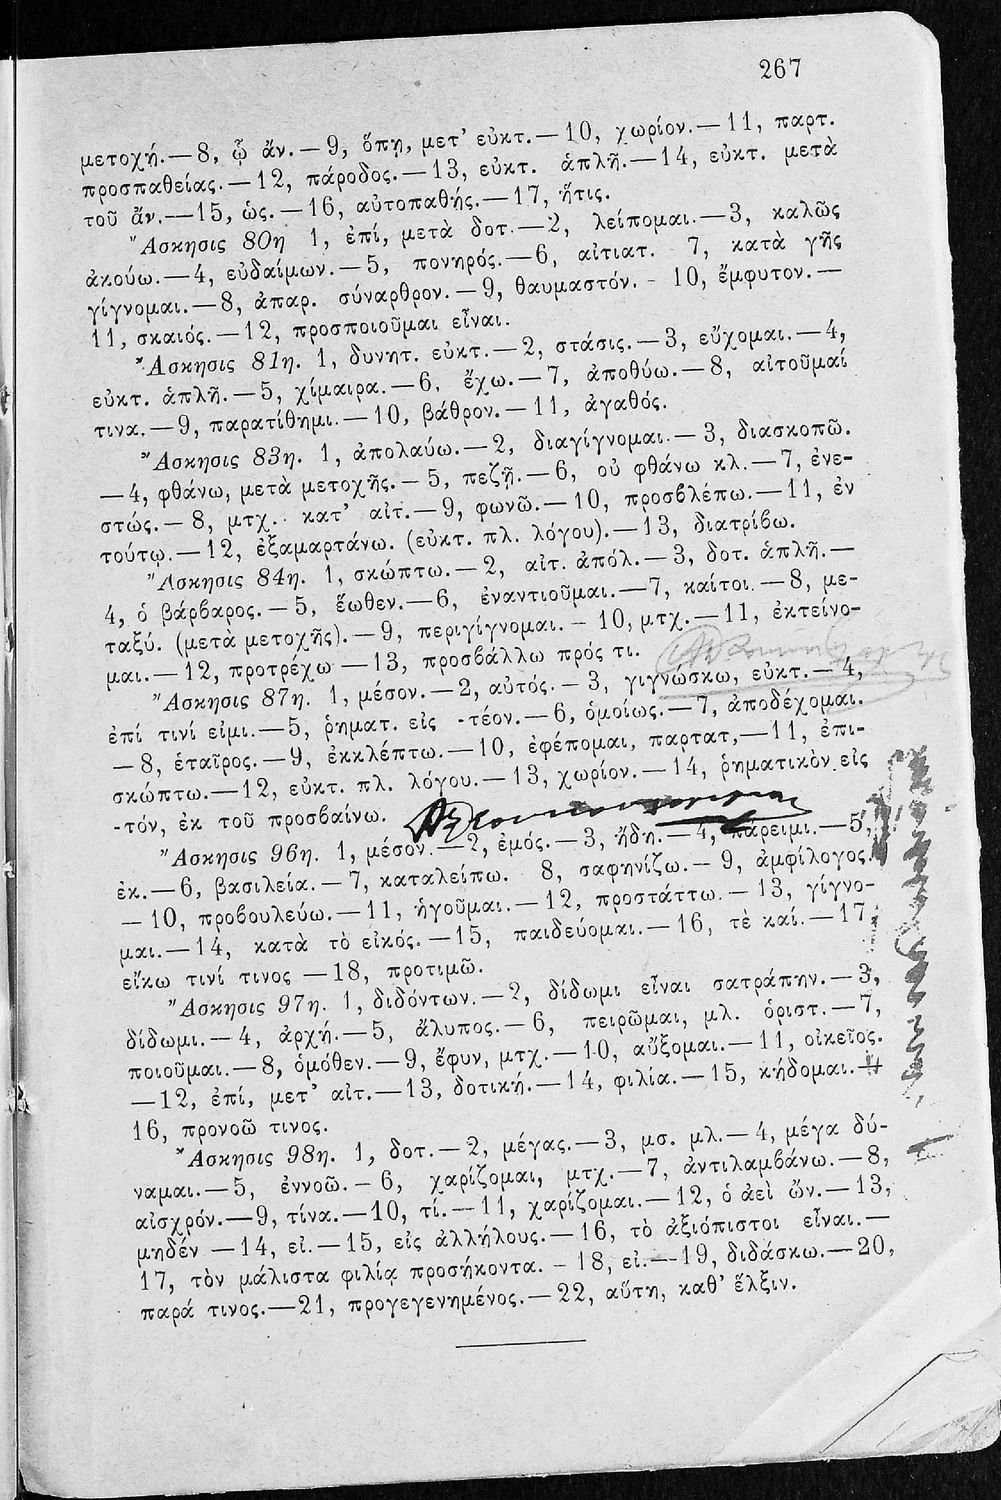 267
μετοχή.—8, ᾧ ἄν.—9, ὅπῃ, μετ' εὐκτ.—10, χωρίον.—11, παρτ.
προσπαθείας.—12, πάροδος.—13, εὐκτ. ἁπλῆ.—14, εὐκτ. μετὰ
τοῦ ἄν.—15, ὡς.—16, αὐτοπαθής.—17, ἥτις.
Ἄσκησις 80η 1, ἐπί, μετὰ δοτ.—2, λείπομαι.—3, καλῶς
ἀκούω.—4, εὐδαίμων.—5, πονηρός.—6, αἰτιατ. 7, κατὰ γῆς
γίγνομαι.—8, ἀπαρ. σύναρθρον.—9, θαυμαστόν. - 10, ἔμφυτον.—
11, σκαιός.—12, προσποιοῦμαι εἶναι.
Ἄσκησις 81η. 1, δυνητ. εὐκτ.—2, στάσις.—3, εὔχομαι.—4,
εὐκτ. ἁπλῆ.—5, χίμαιρα.—6, ἔχω.—7, ἀποθύω.—8, αἰτοῦμαί
τινα.—9, παρατίθημι.—10, βάθρον.—11, ἀγαθός.
Ἄσκησις 83η. 1, ἀπολαύω.—2, διαγίγνομαι.—3, διασκοπῶ.
—4, φθάνω, μετὰ μετοχῆς.—5, πεζῇ.—6, οὐ φθάνω κλ.—7, ἐνε-
στώς.—8, μτχ. κατ' αἰτ.—9, φωνῶ.—10, προσβλέπω.—11, ἐν
τούτῳ.—12, ἐξαμαρτάνω. (εὐκτ. πλ. λόγου).—13, διατρίβω.
Ἄσκησις 84η. 1, σκώπτω.—2, αἰτ. ἀπόλ.—3, δοτ. ἁπλῆ.—
4, ὁ βάρβαρος.—5, ἕωθεν.—6, ἐναντιοῦμαι.—7, καίτοι.—8, με-
ταξύ. (μετὰ μετοχῆς).—9, περιγίγνομαι. - 10, μτχ.—11, ἐκτείνο-
μαι.—12, προτρέχω —13, προσβάλλω πρός τι.
Ἄσκησις 87η. 1, μέσον.—2, αὐτός.—3, γιγνώσκω, εὐκτ.—4,
ἐπί τινί εἰμι.—5, ῥηματ. εἰς -τέον.—6, ὁμοίως.—7, ἀποδέχομαι.
—8, ἑταῖρος.—9, ἐκκλέπτω.—10, ἐφέπομαι, παρτατ,—11, ἐπι-
σκώπτω.—12, εὐκτ. πλ. λόγου.—13, χωρίον.—14, ῥηματικὸν εἰς
-τόν, ἐκ τοῦ προσβαίνω.
Ἄσκησις 96η. 1, μέσον.—2, ἐμός.—3, ἤδη.—4, πάρειμι.—5,
ἐκ.—6, βασιλεία.—7, καταλείπω. 8, σαφηνίζω.—9, ἀμφίλογος.
—10, προβουλεύω.—11, ἡγοῦμαι.—12, προστάττω.—13, γίγνο-
μαι.—14, κατὰ τὸ εἰκός.—15, παιδεύομαι.—16, τὲ καί.—17,
εἴκω τινί τινος —18, προτιμῶ.
Ἄσκησις 97η. 1, διδόντων.—2, δίδωμι εἶναι σατράπην.—3,
δίδωμι.—4, ἀρχή.—5, ἄλυπος.—6, πειρῶμαι, μλ. ὁριστ.—7,
ποιοῦμαι.—8, ὁμόθεν.—9, ἔφυν, μτχ.—10, αὔξομαι.—11, οἰκεῖος.
—12, ἐπί, μετ' αἰτ.—13, δοτική.—14, φιλία.—15, κήδομαι.—
16, προνοῶ τινος.
Ἄσκησις 98η. 1, δοτ.—2, μέγας.—3, μσ. μλ.—4, μέγα δύ-
ναμαι.—5, ἐννοῶ.—6, χαρίζομαι, μτχ.—7, ἀντιλαμβάνω.—8,
αἰσχρόν.—9, τίνα.—10, τί.—11, χαρίζομαι.—12, ὁ ἀεὶ ὤν.—13,
μηδέν —14, εἰ.—15, εἰς ἀλλήλους.—16, τὸ ἀξιόπιστοι εἶναι.—
17, τὸν μάλιστα φιλίᾳ προσήκοντα. - 18, εἰ.—19, διδάσκω.—20,
παρά τινος.—21, προγεγενημένος.—22, αὕτη, καθ' ἕλξιν.